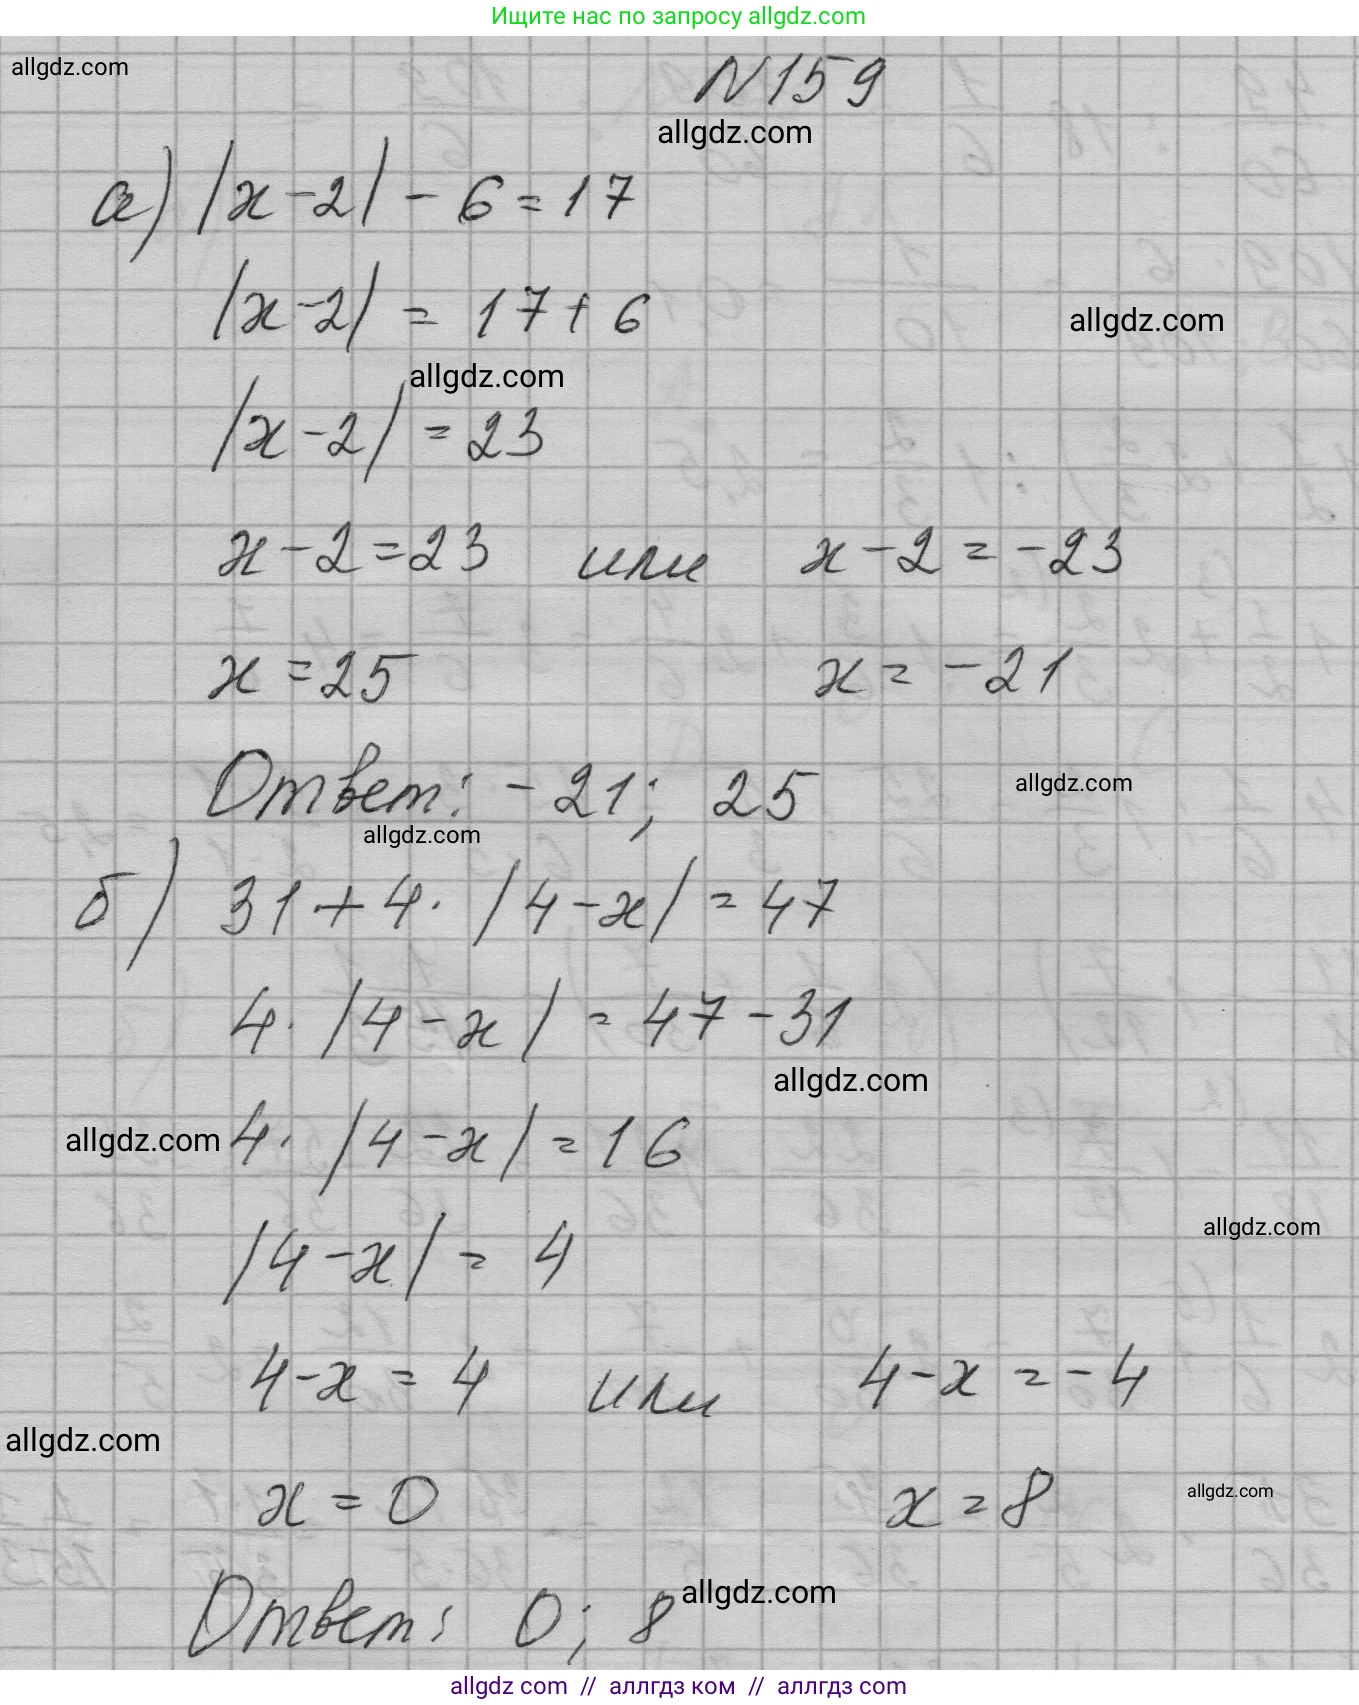 Ищите нас по запросу allgdz.com
allgdz.com
N159
allgdz.com
а) |x-2| - 6 = 17
|x-2| = 17+6
allgdz.com
allgdz.com
|x-2| = 23
x-2=23 или x-2=-23
x=25 x=-21
Ответ: -21; 25
allgdz.com
allgdz.com
б) 31+4·|4-x|=47
4·|4-x|=47-31
allgdz.com
allgdz.com
4·|4-x|=16
allgdz.com
|4-x|=4
4-x=4 или 4-x=-4
allgdz.com
x=0 x=8
allgdz.com
allgdz.com
Ответ: 0; 8
allgdz com // аллгдз ком // аллгдз com